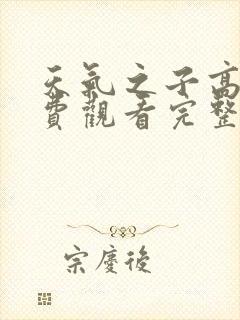 天氣之子高
費觀看完整
宗慶後